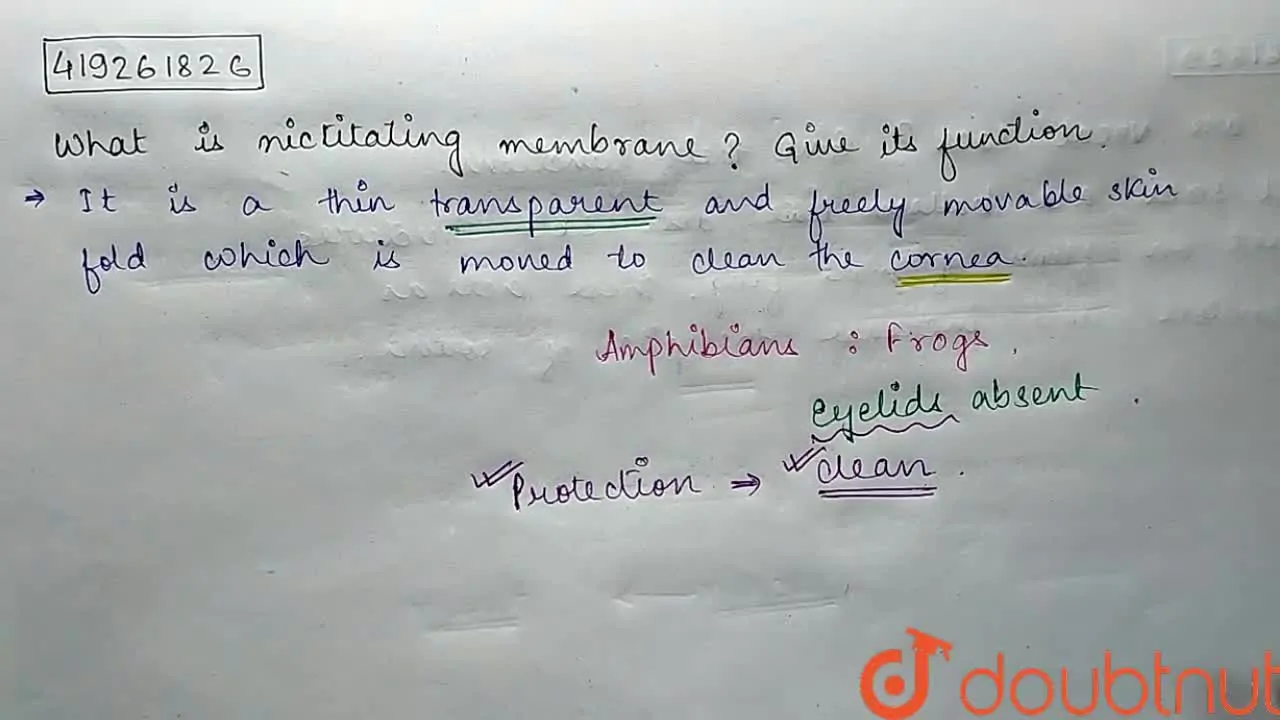 419261826
What is nictitating membrane? Give its function.
⇒ It is a thin transparent and freely movable skin
fold which is moved to clean the cornea.
Amphibians : Frogs.
eyelids absent.
Protection ⇒ clean.
doubtnut